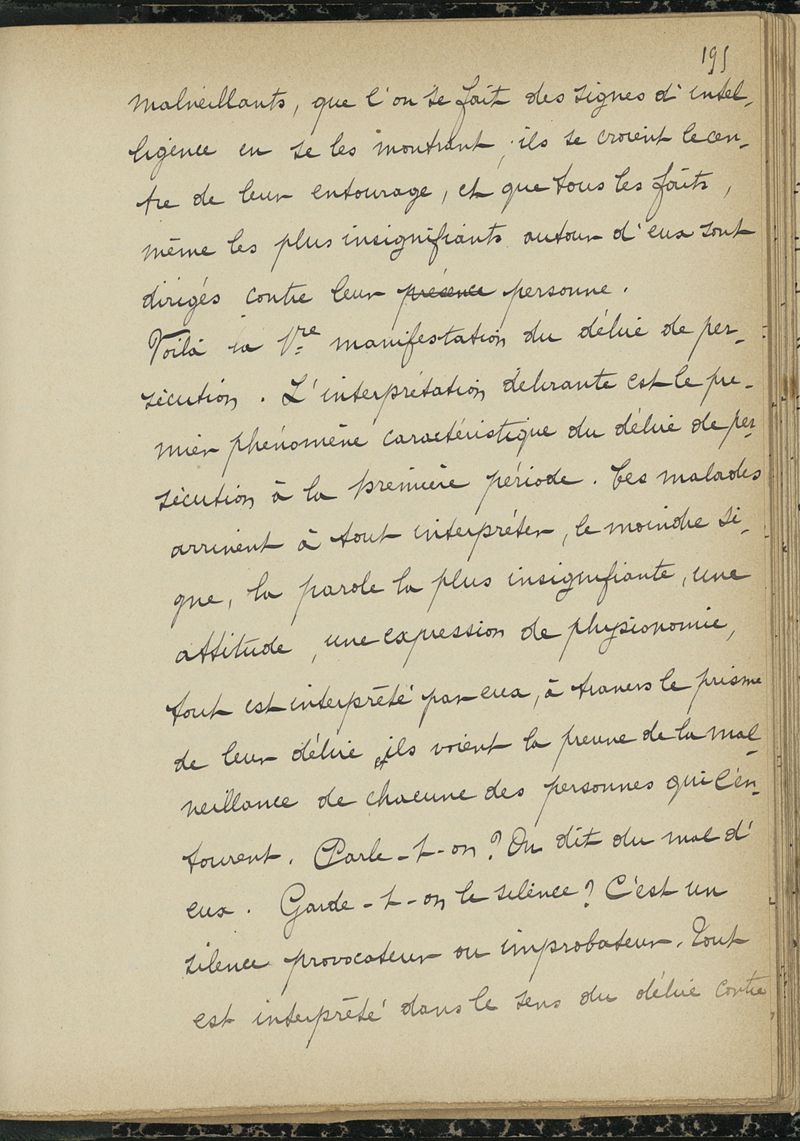 195
malveillants, que l'on se fait des signes d'intel-
ligence en se les montrant ; ils se croient le cen-
tre de leur entourage, et que tous les faits,
même les plus insignifiants autour d'eux sont
dirigés contre leur présence personne.
Voilà la 1re manifestation du délire de per-
sécution. L'interprétation délirante est le pre-
mier phénomène caractéristique du délire de per
sécution à la première période. Ces malades
arrivent à tout interpréter, le moindre si-
gne, la parole la plus insignifiante, une
attitude, une expression de physionomie,
tout est interprété par eux, à travers le prisme
de leur délire et ils voient la preuve de la mal-
veillance de chacune des personnes qui l'en-
tourent. Parle-t-on? On dit du mal d'
eux. Garde-t-on le silence? C'est un
silence provocateur ou improbateur. Tout
est interprété dans le sens du délire contre